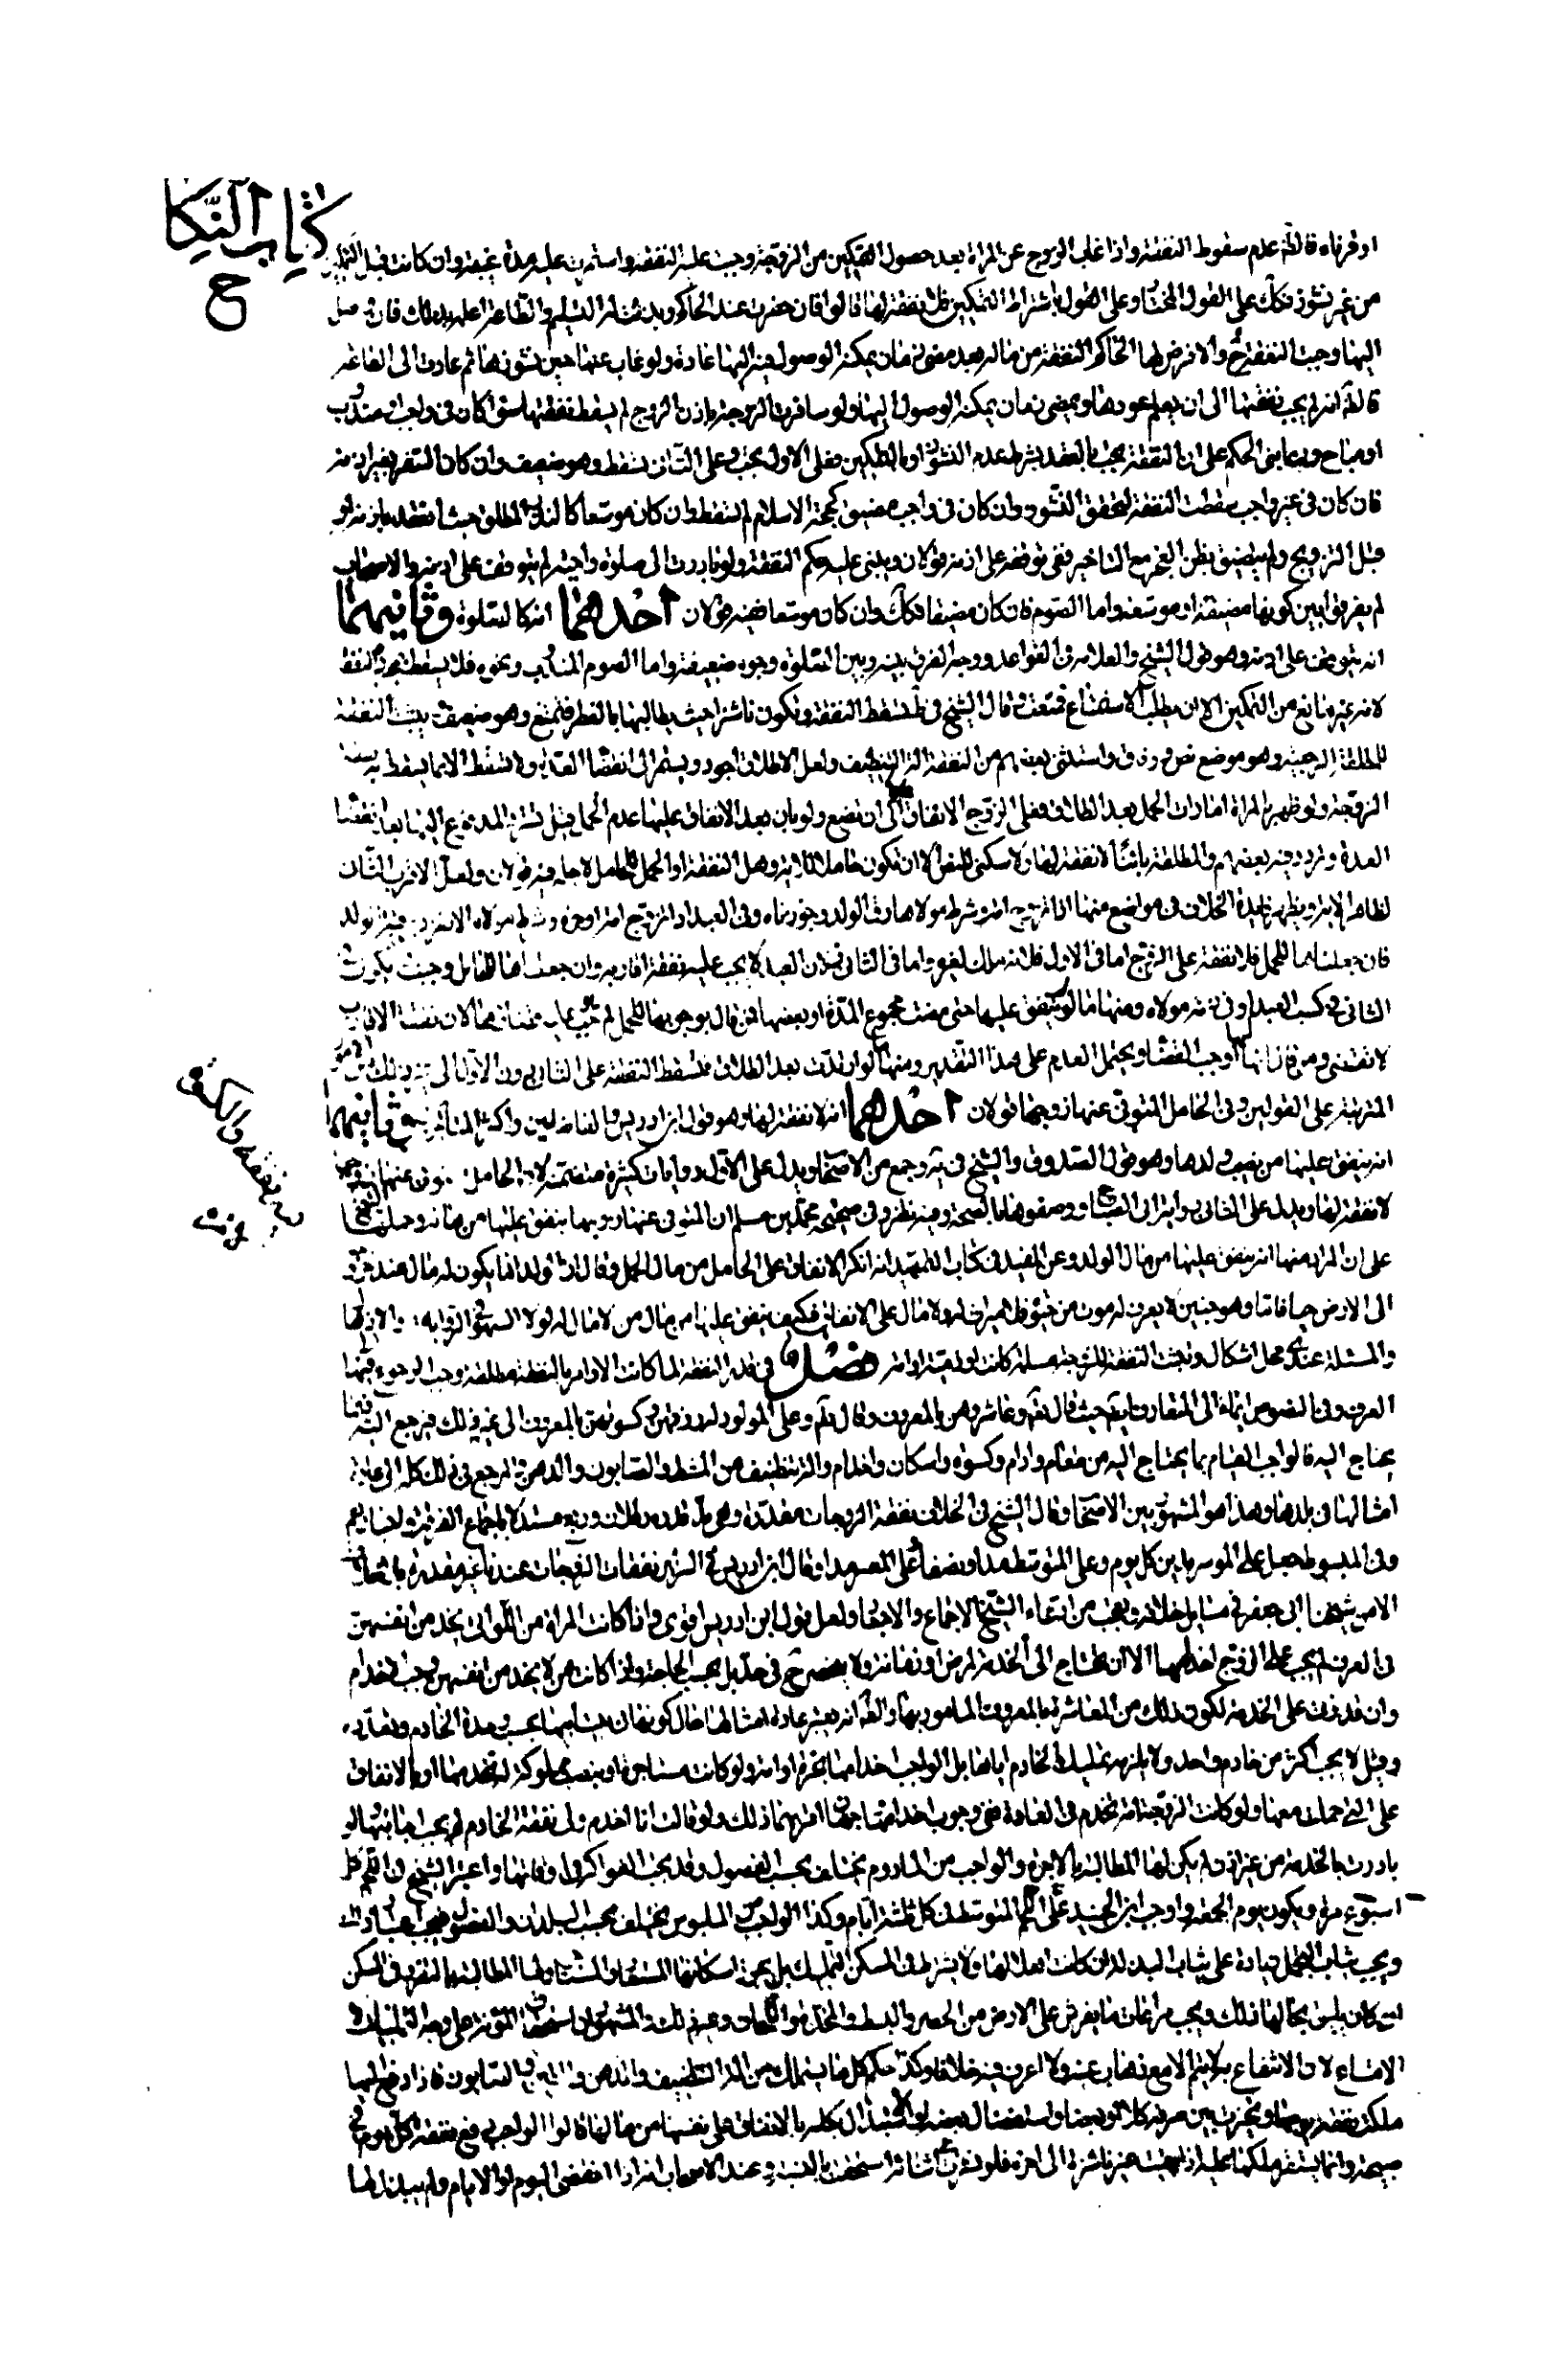 كتاب النكا
ح
او قرناء فالظ عدم سقوط النفقة واذا غاب الزوج عن المراة بعد حصول التمكين من الزوجة وجبت عليه النفقة واستمرت عليه مدة غيبته وان كانت قبل التمكين
من غير نشوز فكك على القول المختار وعلى القول باشتراط التمكين فلا نفقة لها قالوا فان حضرت عند الحاكم وبذلت له التسليم والطاعة اعلم بذلك فان وصل
اليها وجبت النفقة ح والا فرض لها الحاكم النفقة من ماله بعد مضى زمان يمكنه الوصول فيه اليها عادة ولو غاب عنها حين نشوزها ثم عادت الى الطاعة
فالظ انه لم يجب نفقتها الى ان يعلم عودها ويمضى زمان يمكنه الوصول اليها ولو سافرت الزوجة باذن الزوج لم يسقط نفقتها سواء كان فى واجب او مندوب
او مباح وبما بنى الحكم على ان النفقة يجب بالعقد بشرط عدم النشوز او بالتمكين فعلى الاول يجب وعلى الثانى تسقط وهو ضعيف وان كان السفر بغير اذنه
فان كان فى غير واجب سقطت النفقة لتحقق النشوز وان كان فى واجب مضيق كحجة الاسلام لم تسقط وان كان موسعا كالنذر المطلق حيث انعقد باذنه او
قبل التزويج ولم يتضيق بظن العجز مع التاخير ففى توقفه على اذنه قولان ويبنى عليه حكم النفقة ولو بادرت الى صلوة واجبة لم يتوقف على اذنه والاصحاب
لم يفرقوا بين كونها مضيقة او موسعة واما الصوم فان كان مضيقا فكك وان كان موسعا ففيه قولان احدهما انه كالصلوة وثانيهما
انه يتوقف على اذنه وهو قول الشيخ والعلامة فى القواعد ووجه الفرق بينه وبين الصلوة وجوه ضعيفة واما الصوم المندوب ونحوه فلا يسقط بمجرده النفقة
لانه غير مانع من التمكين الا ان يطلب الاستمتاع فتمنعه وقال الشيخ فى ط تسقط النفقة وتكون ناشزا حيث يطالبها بالفطر فتمتنع وهو ضعيف وتثبت النفقة
للمطلقة الرجعية وهو موضع نص ووفاق واستثنى بعضهم من النفقة الة التنظيف ولعل الاطلاق اجود ويستمر الى انقضاء العدة ولا تسقط الا بما يسقط به نفقة
الزوجة ولو ظهر بالمراة امارات الحمل بعد الطلاق فعلى الزوج الانفاق الى ان تضع ولو بان بعد الانفاق عليها عدم الحمل
العدة وتردد فيه بعضهم والمطلقة بائنا لا نفقة لها ولا سكنى للنص الا ان تكون حاملا للاية وهل النفقة او الحمل للحامل لاجله فيه قولان ولعل الاقرب الثانى
لظاهر الاية ويظهر فايدة الخلاف فى مواضع منها اذا تزوج امة وشرط مولاها رق الولد وجوزناه وفى العبد اذا تزوج امة او حرة وشرط مولاه الانفراد برق الولد
فان جعلناها للحمل فلا نفقة على الزوج اما فى الاول فلانه ملك لغيره واما فى الثانى فلان العبد لا يجب عليه نفقة اقاربه وان جعلناها للحامل وجبت يكون فى
الثانى فى كسب العبد او فى ذمة مولاه ومنها ما لو لم ينفق عليها حتى مضت مجموع المدة او بعضها فمن قال بوجوبها للحمل لم يجب عليه قضاؤها لان نفقة الاقارب
لا تقضى ومن قال انها لها اوجب القضاء ويحتمل العدم على هذا التقدير ومنها لو ارتدت بعد الطلاق فتسقط النفقة على الثانى دون الاول الى غير ذلك من الامور
المتفرعة على القولين وفى الحامل المتوفى عنها زوجها قولان احدهما انه لا نفقة لها وهو قول ابن ادريس والفاضلين واكثر المتاخرين وثانيهما
انه ينفق عليها من نصيب ولدها وهو قول الصدوق والشيخ فى يه وجمع من الاصحاب ويدل على الاول روايات كثيرة متضمنة لان الحامل المتوفى عنها زوجها
لا نفقة لها ويدل على الثانى رواية ابى الصباح ووصفوها بالصحة وفيه نظر وفى صحيحة محمد بن مسلم ان المتوفى عنها زوجها ينفق عليها من ماله وحملها الشيخ
على ان المراد منها انه ينفق عليها من مال الولد وعن المفيد فى كتاب التمهيد انه انكر الانفاق على الحامل من مال الحمل وقال ان الولد انما يكون له مال عند خروجه
الى الارض حيا فاما وهو جنين لا يعرف له موت من حيوة فلا ميراث له ولا مال على الانفاق فكيف ينفق عليها من مال من لا مال له لولا السهو فى الرواية
والمسئلة عندى محل اشكال وتثبت النفقة للزوجة مسلمة كانت او ذمية او امة فصل فى قدر النفقة لما كانت الاوامر بالنفقة مطلقة وجب الرجوع فيها الى
العرف وفى النصوص ايماء الى المتعارف ايضا حيث قال تعالى وعاشروهن بالمعروف وقال تعالى وعلى المولود له رزقهن وكسوتهن بالمعروف الى غير ذلك فيرجع اليه فيما
يحتاج اليه فالواجب القيام بما يحتاج اليه من طعام وادام وكسوة واسكان واخدام والة التنظيف من المشط والصابون والدهن والمرجع فى ذلك كله الى عادة
امثالها فى بلدها وهذا هو المشهور بين الاصحاب وقال الشيخ فى الخلاف نفقة الزوجات مقدرة وهى مد قدره رطلان وربع مستدلا باجماع الفرقة واخبارهم
وفى المبسوط جعل على الموسر مدين كل يوم وعلى المتوسط مدا ونصفا وعلى المعسر مدا وقال ابن ادريس فى السرائر نفقات الزوجات عندنا غير مقدرة بلا خلاف
الا من شيخنا ابى جعفر فى مسايل خلافه وتعجب من ادعاء الشيخ الاجماع والاخبار ولعل قول ابن ادريس اقوى واذا كانت المراة من اللواتى يخدمن انفسهن
فى العرف لم يجب على الزوج اخدامها الا ان تحتاج الى الخدمة لمرض او زمانة ولا ينحصر ح فى حد بل بحسب الحاجة ولو كانت ممن لا يخدمن انفسهن وجب اخدام
وان قدرت على الخدمة لكون ذلك من المعاشرة بالمعروف المامور بها والظ انه يعتبر عادة امثالها حال كونها فى بيت ابيها بحسب وحدة الخادم وتعدده
وقيل لا يجب اكثر من خادم واحد ولا يلزمه تمليك الخادم اياها بل الواجب اخدامها بحرة او امة ولو كانت مستاجرة او بنصب مملوكة له تخدمها او بالانفاق
على التى حملت معها ولو كانت الزوجة امة تخدم فى العادة ففى وجوب اخدامها وجهان اقربهما ذلك ولو قالت انا اخدم ولى نفقة الخادم لم يجب اجابتها ولو
بادرت بالخدمة من غير اذن لم يكن لها المطالبة بالاجرة والواجب من المادوم يختلف بحسب الفصول وقد يجب الفواكه فى اوقاتها واعتبر الشيخ فى اللحم كل
اسبوع مرة ويكون يوم الجمعة واوجب ابن الجنيد اللحم على المتوسط فى كل ثلثة ايام وكذا الواجب من الملبوس يختلف بحسب البلدان والفصول
ويجب ثياب التجمل زيادة على ثياب البدن لو كانت اهلا لها ولا يشترط فى المسكن التمليك بل يجوز اسكانها المستعار والمستاجر ولها المطالبة بالتفرد فى المسكن
ان كان يليق بحالها ذلك ويجب مراعات ما يفرش على الارض من الحصير والبسط والمخدة واللحاف وغير ذلك والمشهور ان استحقاق المؤنة على وجه التمليك لا
الامتاع لان الانتفاع به لا يتم الا مع ذهاب عينه ولا اعرف فيه خلافا وكذا حكم كل ما يستهلك من الة التنظيف والدهن والطين والصابون فاذا دفع اليها
ملكت نفقة يومها وتخيرت بين صرفه كلا او بعضا واستفضال بعضه او استبدال كله بالانفاق على نفسها من مالها قالوا الواجب دفع نفقة كل يوم فى
صبيحته وانما يستقر ملكها عليه اذا بقيت غير ناشزة الى اخره فلو نشزت فى اثنائه استحقت بالنسبة وعند الاصحاب انه اذا انقضى اليوم او الايام ولم يبذل لها
فى نفقة والكسوة